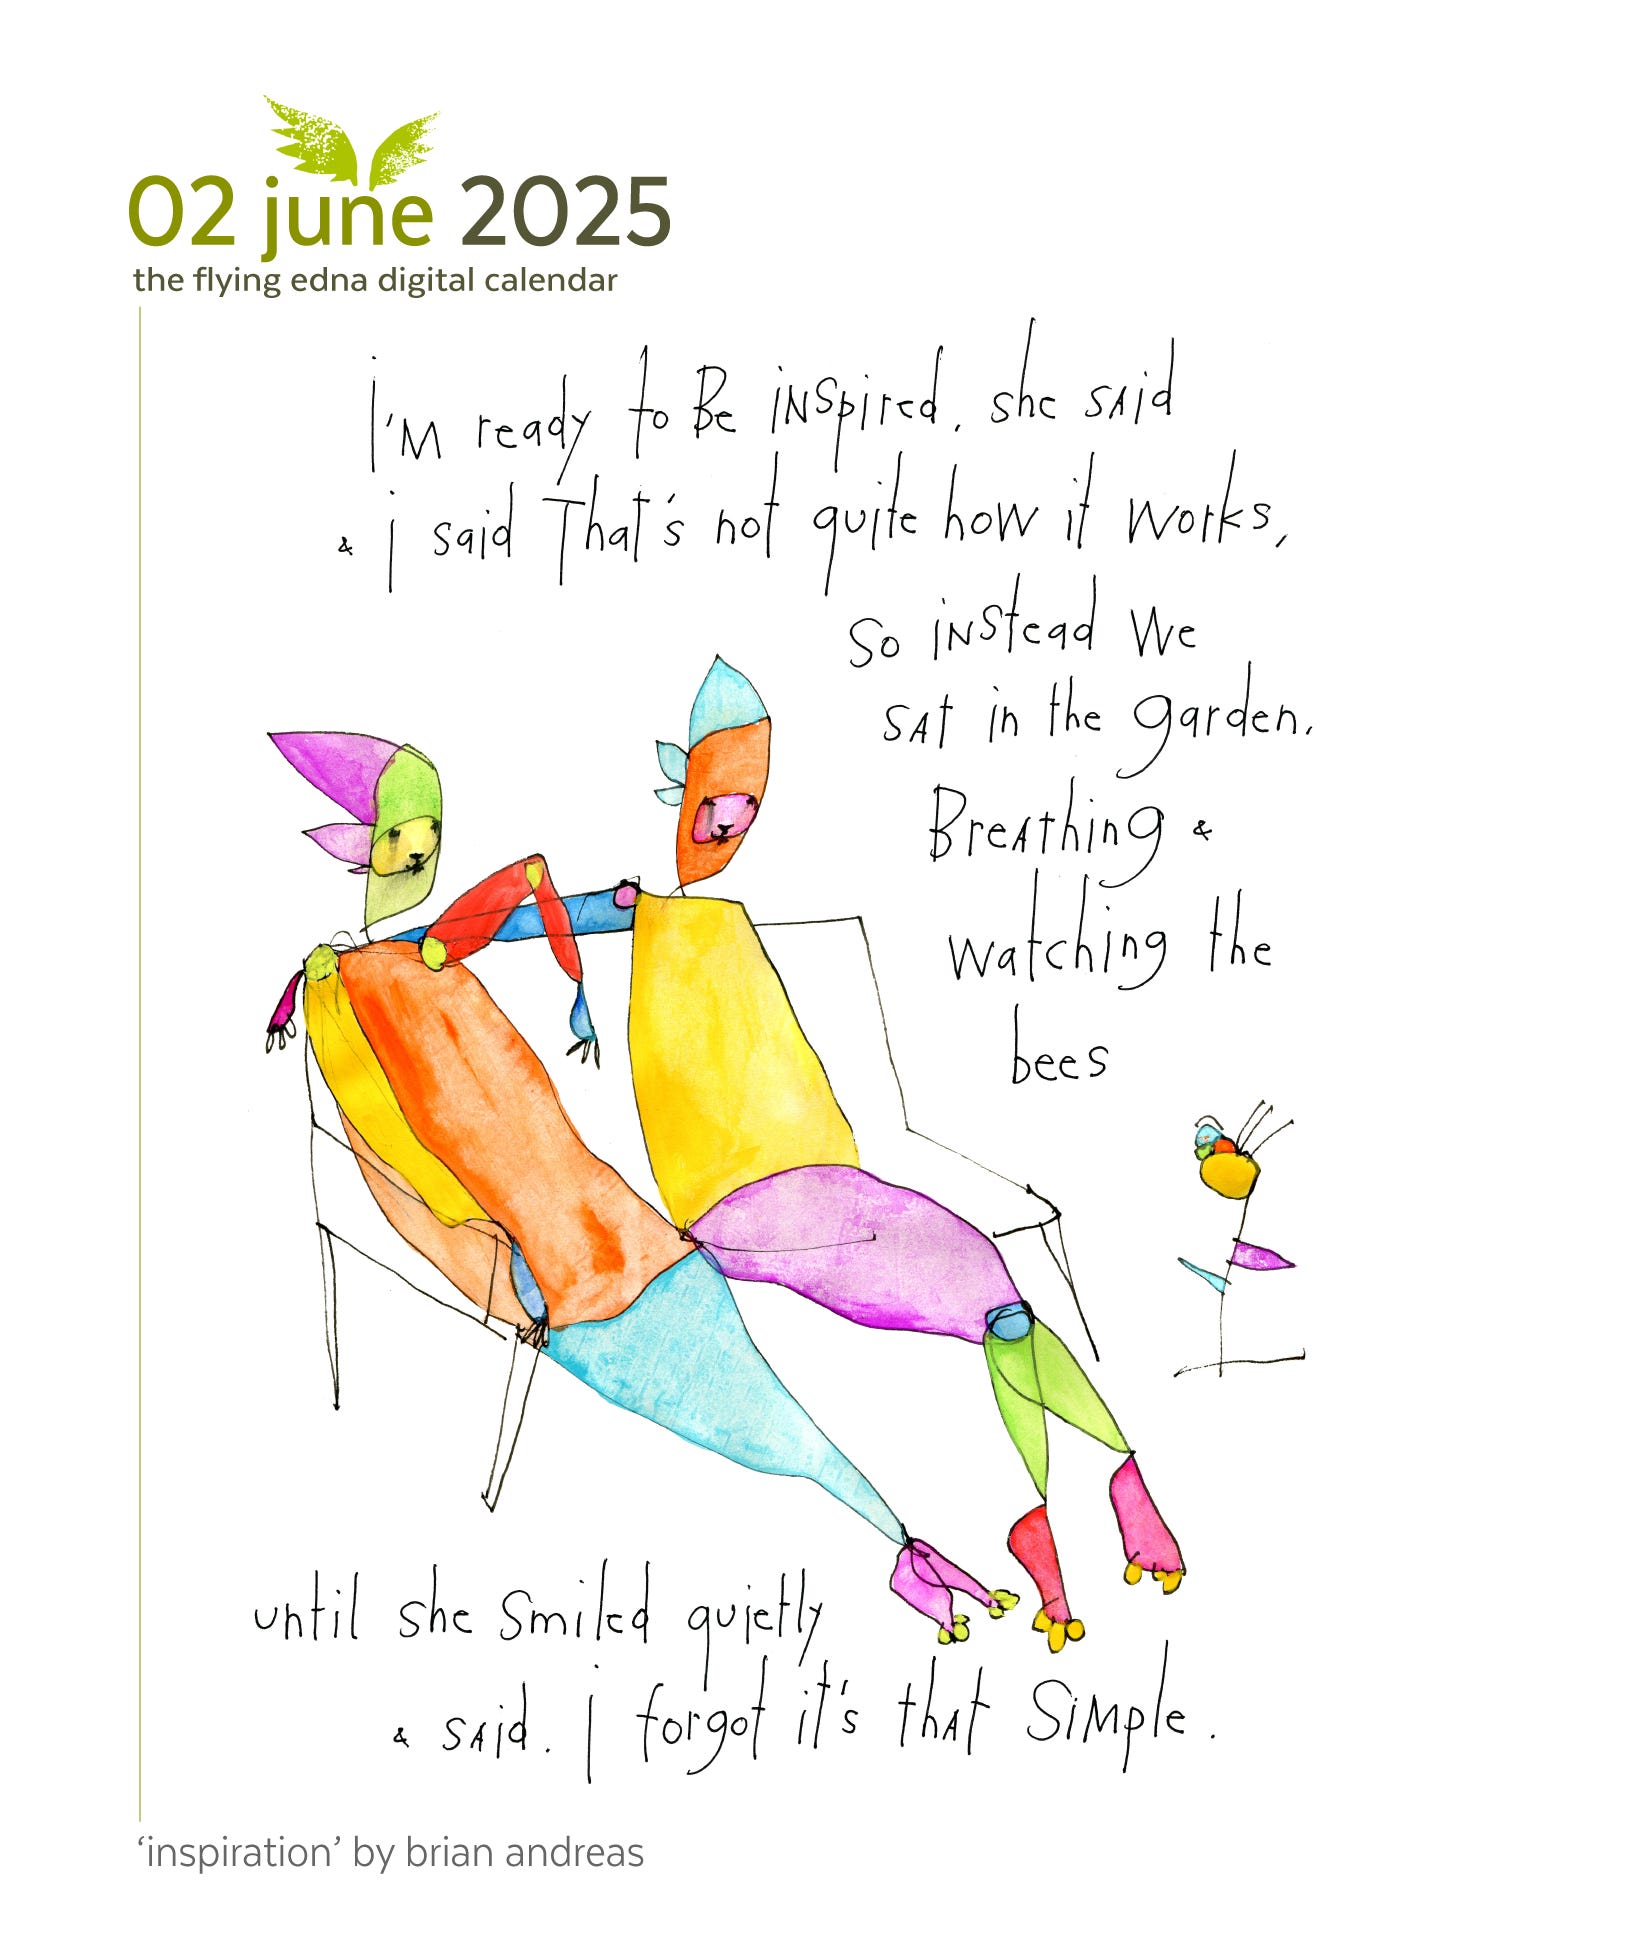 02 june 2025
the flying edna digital calendar
i'm ready to Be inspired, she said
& i said That's not quite how it works,
So instead We
sat in the garden,
Breathing &
watching the
bees
until she smiled quietly
& said. i forgot it's that simple.
‘inspiration’ by brian andreas